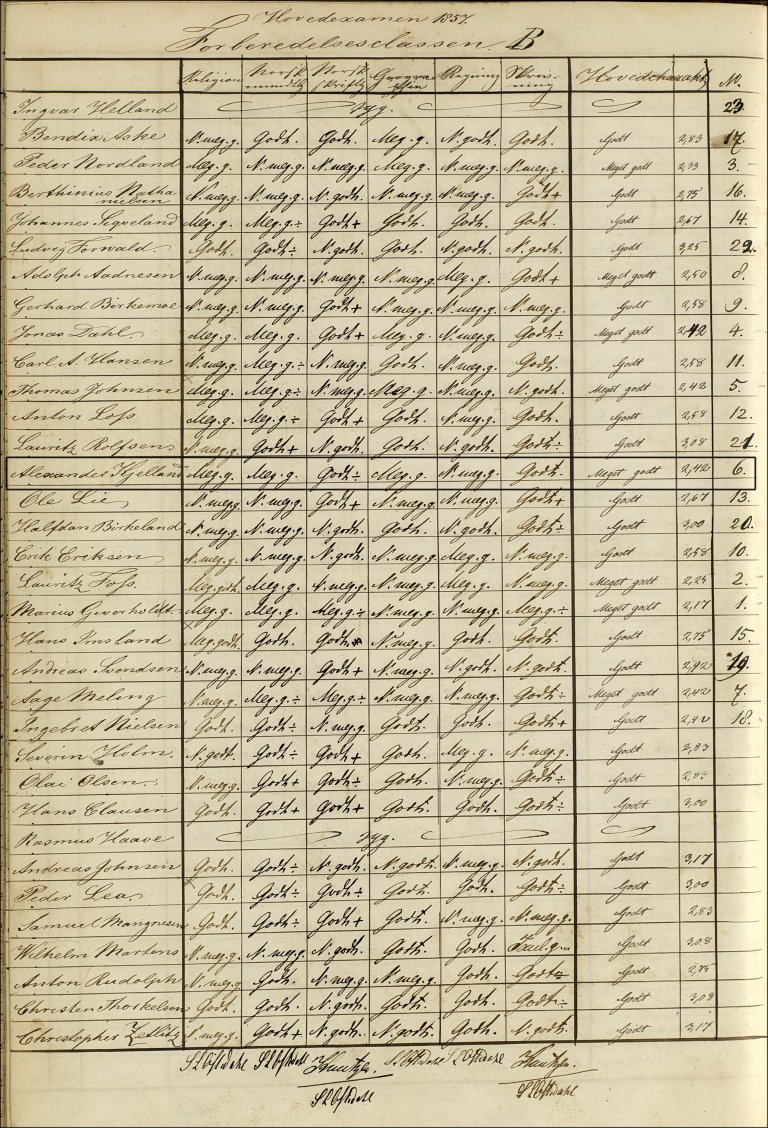 Hovedexamen 1857.
Forberedelsesclassen. B
Religion Norsk mundtlig Norsk skriftlig Geographie Regning Skrivning Hovedcharakt. Nr.
Ingvar Helland syg. 23.
Bendix Aske N. meg. g. Godt. Godt. Meg. g. N. godt. Godt. Godt 2,83 17.
Peder Nordland Meg. g. N. meg. g. N. meg. g. Meg. g. N. meg. g. N. meg. g. Meget godt 2,33 3.
Berthinius Nathanielsen N. meg. g. N. meg. g. N. godt. N. meg. g. N. meg. g. Godt+ Godt 2,75 16.
Johannes Sigveland Meg. g. Meg. g.÷ Godt+ Godt. Godt. Godt. Godt 2,67 14.
Ludvig Torvald. Godt. Godt÷ N. godt. Godt. N. godt. N. godt. Godt 3,25 22.
Adolph Aadnesen N. meg. g. N. meg. g. N. meg. g. N. meg. g. Meg. g. Godt+ Meget godt 2,50 8.
Gerhard Birkemoe N. meg. g. N. meg. g. Godt+ N. meg. g. N. meg. g. N. meg. g. Godt 2,58 9.
Jonas Dahl. Meg. g. Meg. g. Godt+ Meg. g. N. meg. g. Godt÷ Meget godt 2,42 4.
Carl A. Hansen N. meg. g. Meg. g.÷ N. meg. g. Godt. N. meg. g. Godt. Godt 2,58 11.
Thomas Johnsen Meg. g. Meg. g.÷ N. meg. g. Meg. g. N. meg. g. N. godt. Meget godt 2,42 5.
Anton Loss Meg. g. Meg. g.÷ Godt+ Godt. N. meg. g. Godt. Godt 2,58 12.
Lauritz Rolfsen N. meg. g. Godt+ N. godt. Godt. N. godt. Godt÷ Godt 3,08 21.
Alexander Kjelland Meg. g. Meg. g. Godt÷ Meg. g. N. meg. g. Godt. Meget godt 2,42 6.
Ole Lie N. meg. g. N. meg. g. Godt+ N. meg. g. N. meg. g. Godt+ Godt 2,67 13.
Halfdan Birkeland N. meg. g. N. meg. g. N. godt. Godt. N. godt. Godt÷ Godt 3,00 20.
Erik Eriksen N. meg. g. N. meg. g. N. godt. N. meg. g. Meg. g. N. meg. g. Godt 2,58 10.
Lauritz Foss. Meg. godt. Meg. g. N. meg. g. N. meg. g. Meg. g. N. meg. g. Meget godt 2,25 2.
Marius Gverholdt. Meg. g. Meg. g. Meg. g.÷ N. meg. g. N. meg. g. Meg. g.÷ Meget godt 2,17 1.
Hans Imsland Meg. godt. Godt. Godt. N. meg. g. Godt. Godt. Godt 2,75 15.
Andreas Svendsen N. meg. g. N. meg. g. Godt+ N. meg. g. N. godt. N. godt. Godt 2,92 19.
Aage Meling N. meg. g. Meg. g.÷ Meg. g.÷ N. meg. g. N. meg. g. Godt÷ Meget godt 2,42 7.
Ingebret Nielsen Godt. Godt÷ N. meg. g. Godt. Godt. Godt+ Godt 2,92 18.
Severin Holm. N. godt. Godt÷ Godt+ Godt. Meg. g. N. meg. g. Godt 2,83
Olai Olsen. N. meg. g. Godt+ Godt÷ Godt. N. meg. g. Godt÷ Godt 2,83
Hans Clausen Godt. Godt+ Godt+ Godt. Godt. Godt÷ Godt 3,00
Rasmus Haave syg.
Andreas Johnsen Godt. Godt÷ N. godt. N. godt. N. meg. g. N. godt. Godt 3,17
Peder Lea. Godt. Godt÷ Godt÷ Godt. Godt. Godt÷ Godt 3,00
Samuel Mangnesen Godt. Godt÷ Godt+ Godt. N. meg. g. N. meg. g. Godt 2,83
Wilhelm Martens N. meg. g. N. meg. g. N. godt. Godt. Godt. Godt 3,08
Anton Rudolph N. meg. g. Godt. N. meg. g. N. meg. g. Godt. Godt÷ Godt 2,75
Christen Thorkelsen Godt. Godt. N. godt. Godt. Godt. Godt÷ Godt 3,08
Christopher Zetlitz N. meg. g. Godt+ N. godt. N. godt. Godt. N. godt. Godt 3,17